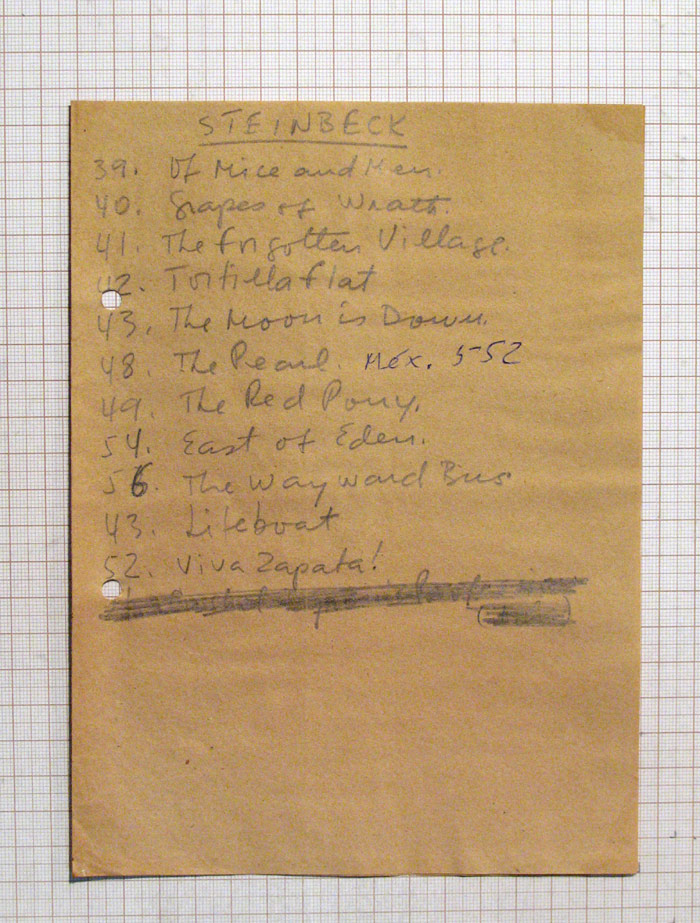 STEINBECK
39. Of Mice and Men.
40. Grapes of Wrath.
41. The Forgotten Village.
42. Tortilla Flat
43. The Moon is Down.
48. The Pearl. Méx. 5-52
49. The Red Pony.
54. East of Eden.
56. The Wayward Bus
43. Lifeboat
52. Viva Zapata!